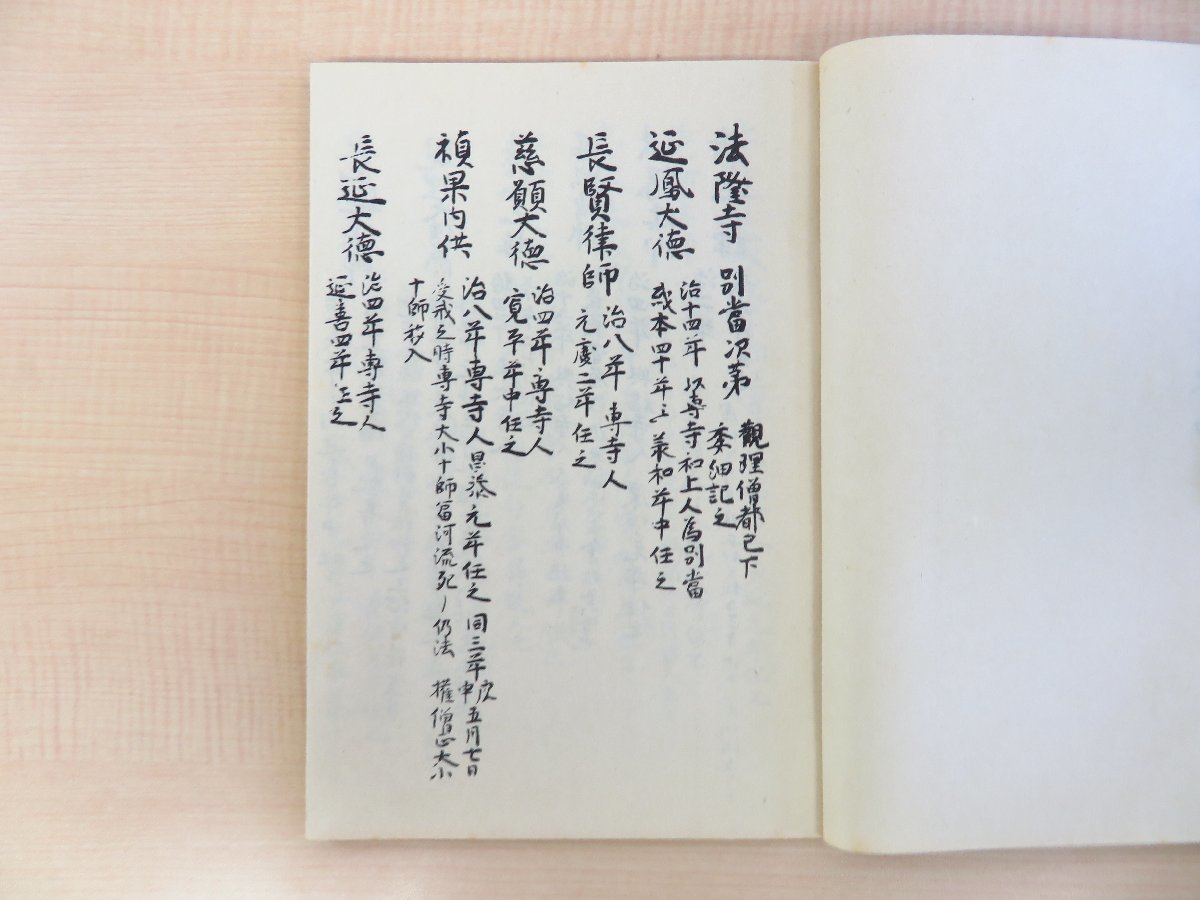 法隆寺 別當次第 觀理僧都已下
委細記之
延鳳大德 治十四年 以專寺和上人為別當
或本四十年云々 義和年中任之
長賢律師 治八年 專寺人
元慶二年任之
慈願大德 治四年 專寺人
寛平年中任之
禎果内供 治八年 專寺人 昌泰元年任之 同三年庚申五月七日
受戒之時專寺大小十師冨河流死ノ仍法 權僧正大小
十師移入
長延大德 治四年 專寺人
延喜四年任之